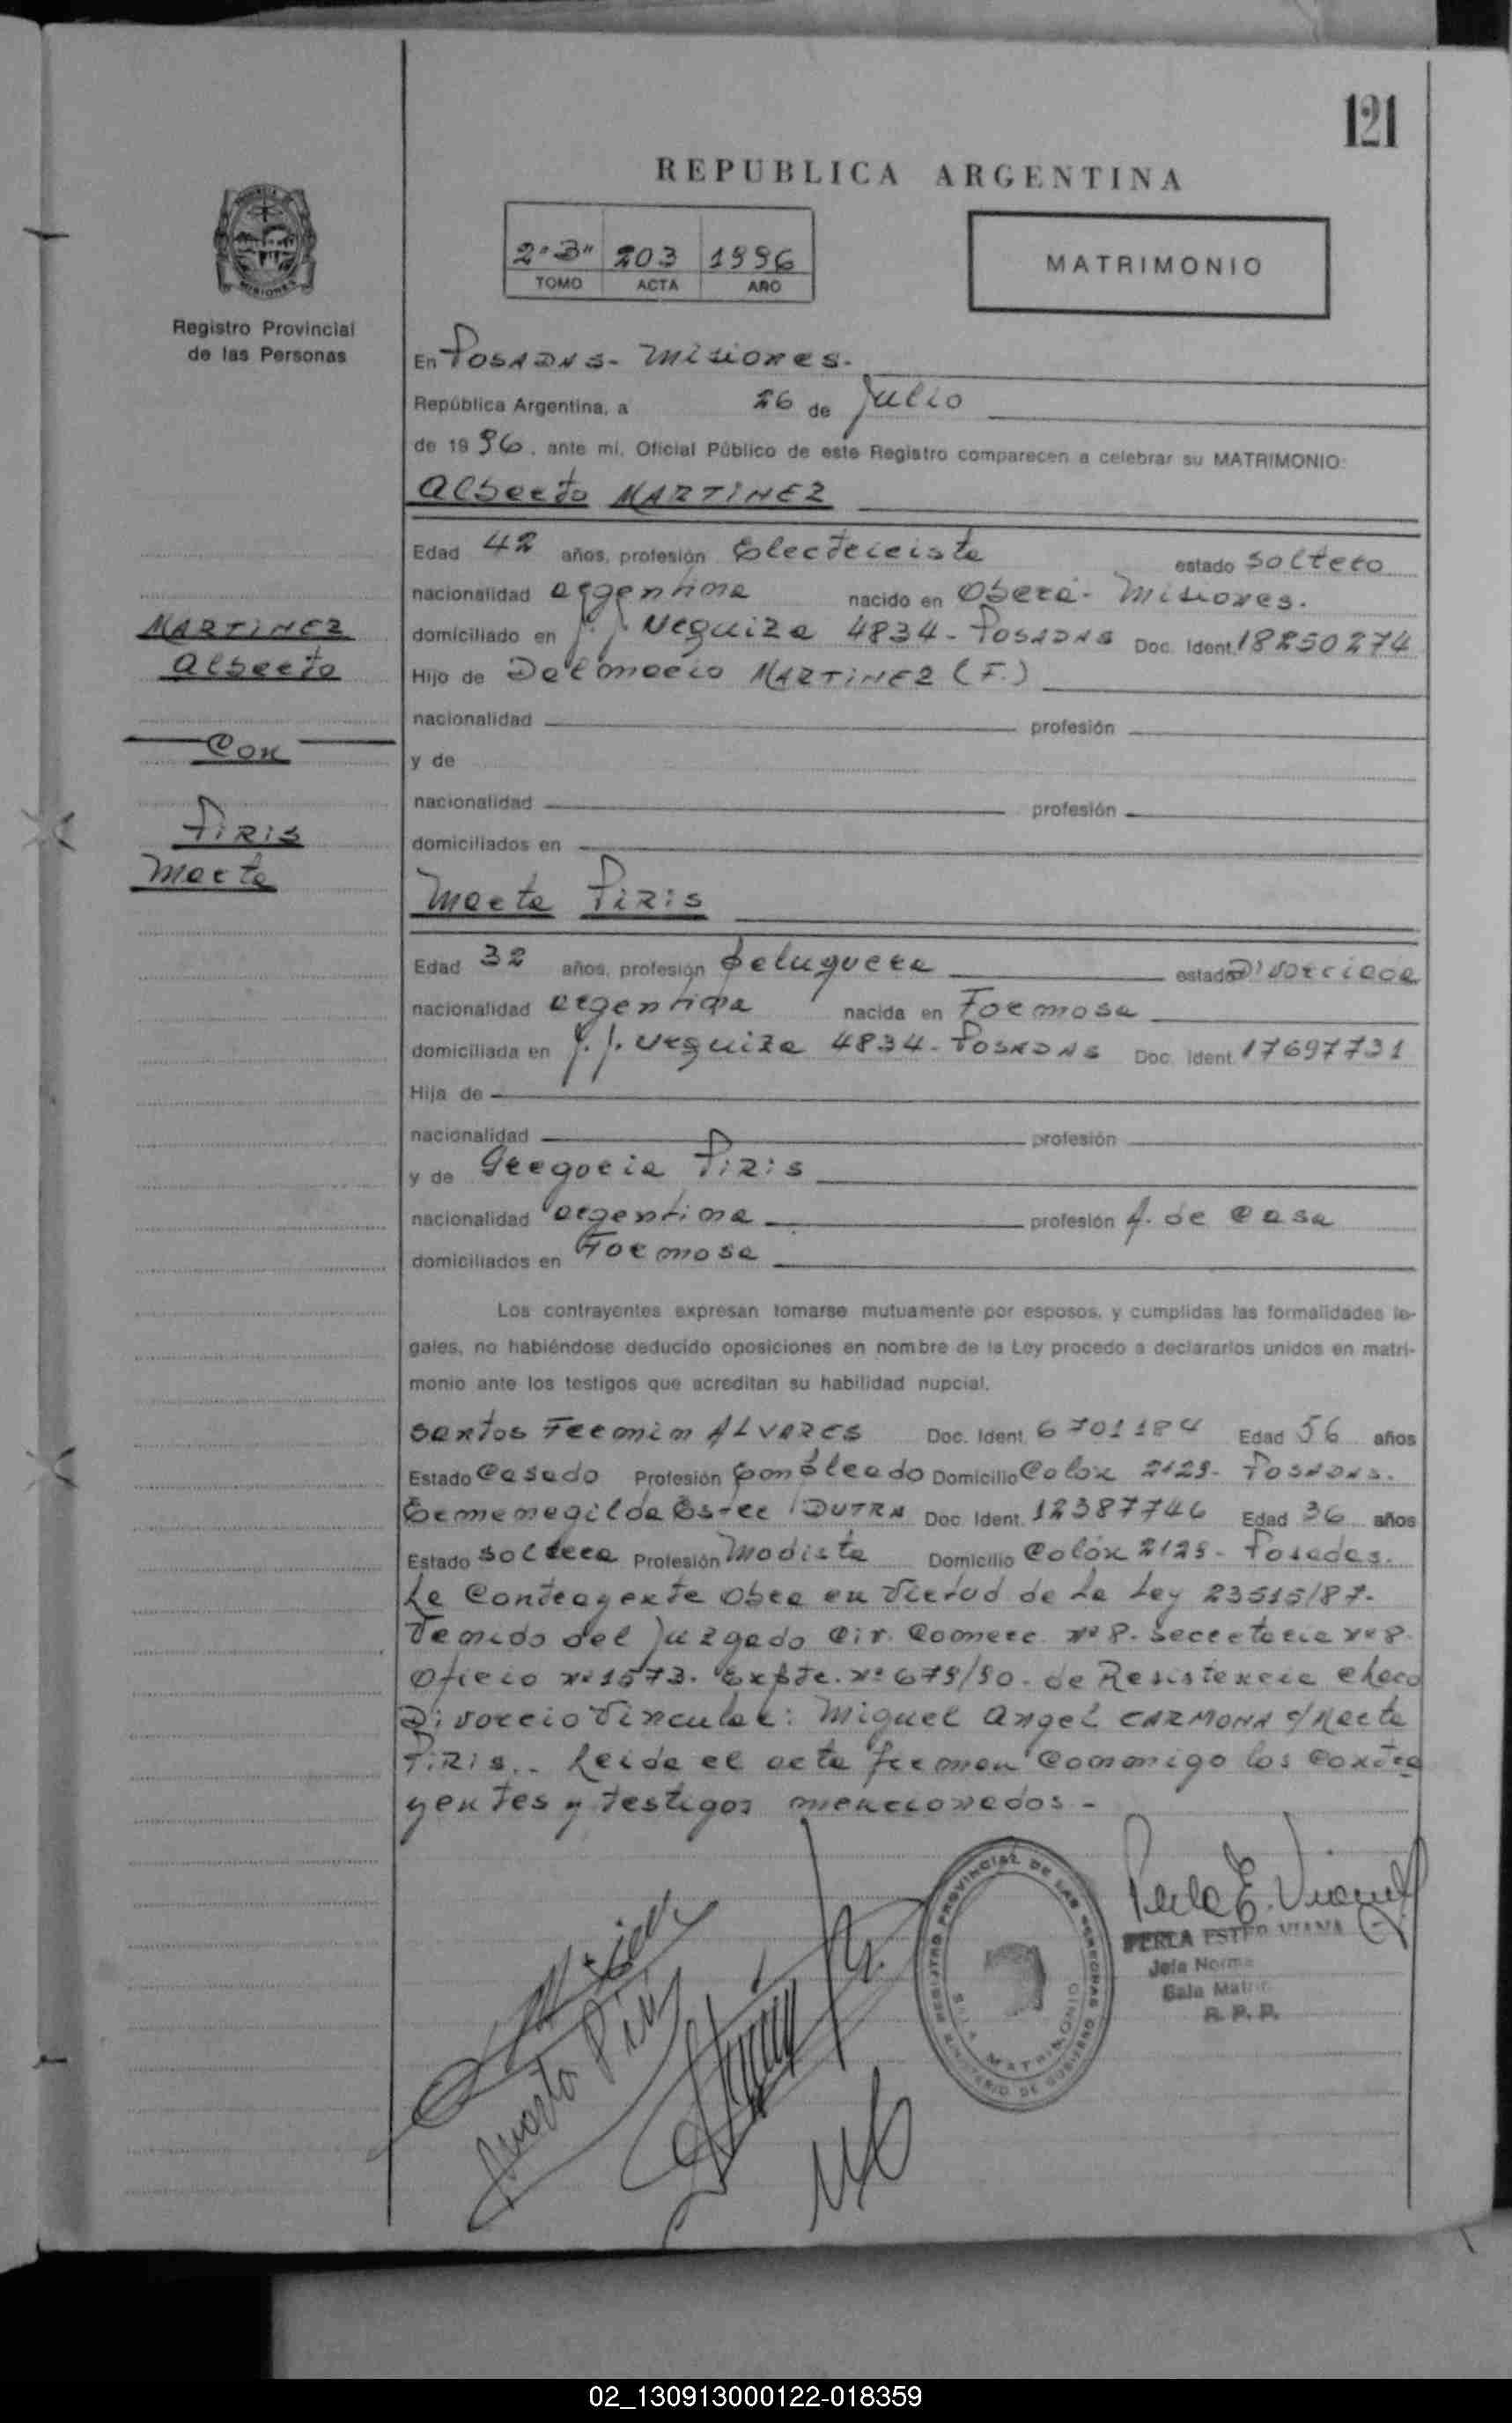 121
REPUBLICA ARGENTINA
2º "B" 203 1996
TOMO ACTA AÑO
MATRIMONIO
Registro Provincial
de las Personas
En POSADAS - Misiones.
República Argentina, a 26 de Julio
de 1996, ante mi, Oficial Público de este Registro comparecen a celebrar su MATRIMONIO:
Alberto MARTINEZ
Edad 42 años, profesión Electricista estado soltero
nacionalidad argentina nacido en Oberá - Misiones.
domiciliado en J. J. Urquiza 4834 - POSADAS Doc. Ident. 18250274
MARTINEZ
Alberto
Hijo de Dalmacio MARTINEZ (F.)
nacionalidad profesión
Con
y de
nacionalidad profesión
PIRIS
domiciliados en
Marta
Marta PIRIS
Edad 32 años, profesión peluquera estado Divorciada
nacionalidad argentina nacida en Formosa
domiciliada en J. J. Urquiza 4834 - POSADAS Doc. Ident. 17697731
Hija de
nacionalidad profesión
y de Gregoria PIRIS
nacionalidad argentina profesión A. de Casa
domiciliados en Formosa
Los contrayentes expresan tomarse mutuamente por esposos, y cumplidas las formalidades le-
gales, no habiéndose deducido oposiciones en nombre de la Ley procedo a declararlos unidos en matri-
monio ante los testigos que acreditan su habilidad nupcial.
Santos Fermin ALVARES Doc. Ident. 6701184 Edad 56 años
Estado Casado Profesión Empleado Domicilio Colón 2129 - POSADAS.
Ermenegilda Ester DUTRA Doc. Ident. 12387746 Edad 36 años
Estado soltera Profesión Modista Domicilio Colón 2129 - Posadas.
La Contrayente obra en virtud de la Ley 23515/87.
Juzgado Civ. Comerc. Nº 8. Secretaria Nº 8.
Oficio Nº 1573. Expte. Nº 679/90. de Resistencia Chaco
Divorcio Vincular: Miguel Angel CARMONA c/ Marta
PIRIS.. Leida el acta firman conmigo los contra
yentes y testigos mencionados -
Marta Piris
REGISTRO PROVINCIAL DE LAS PERSONAS
MINISTERIO DE GOBIERNO
SALA MATRIMONIO
Perla E. Viana
PERLA ESTER VIANA
Jefa Norma
Sala Matri
R. P. P.
02_130913000122-018359